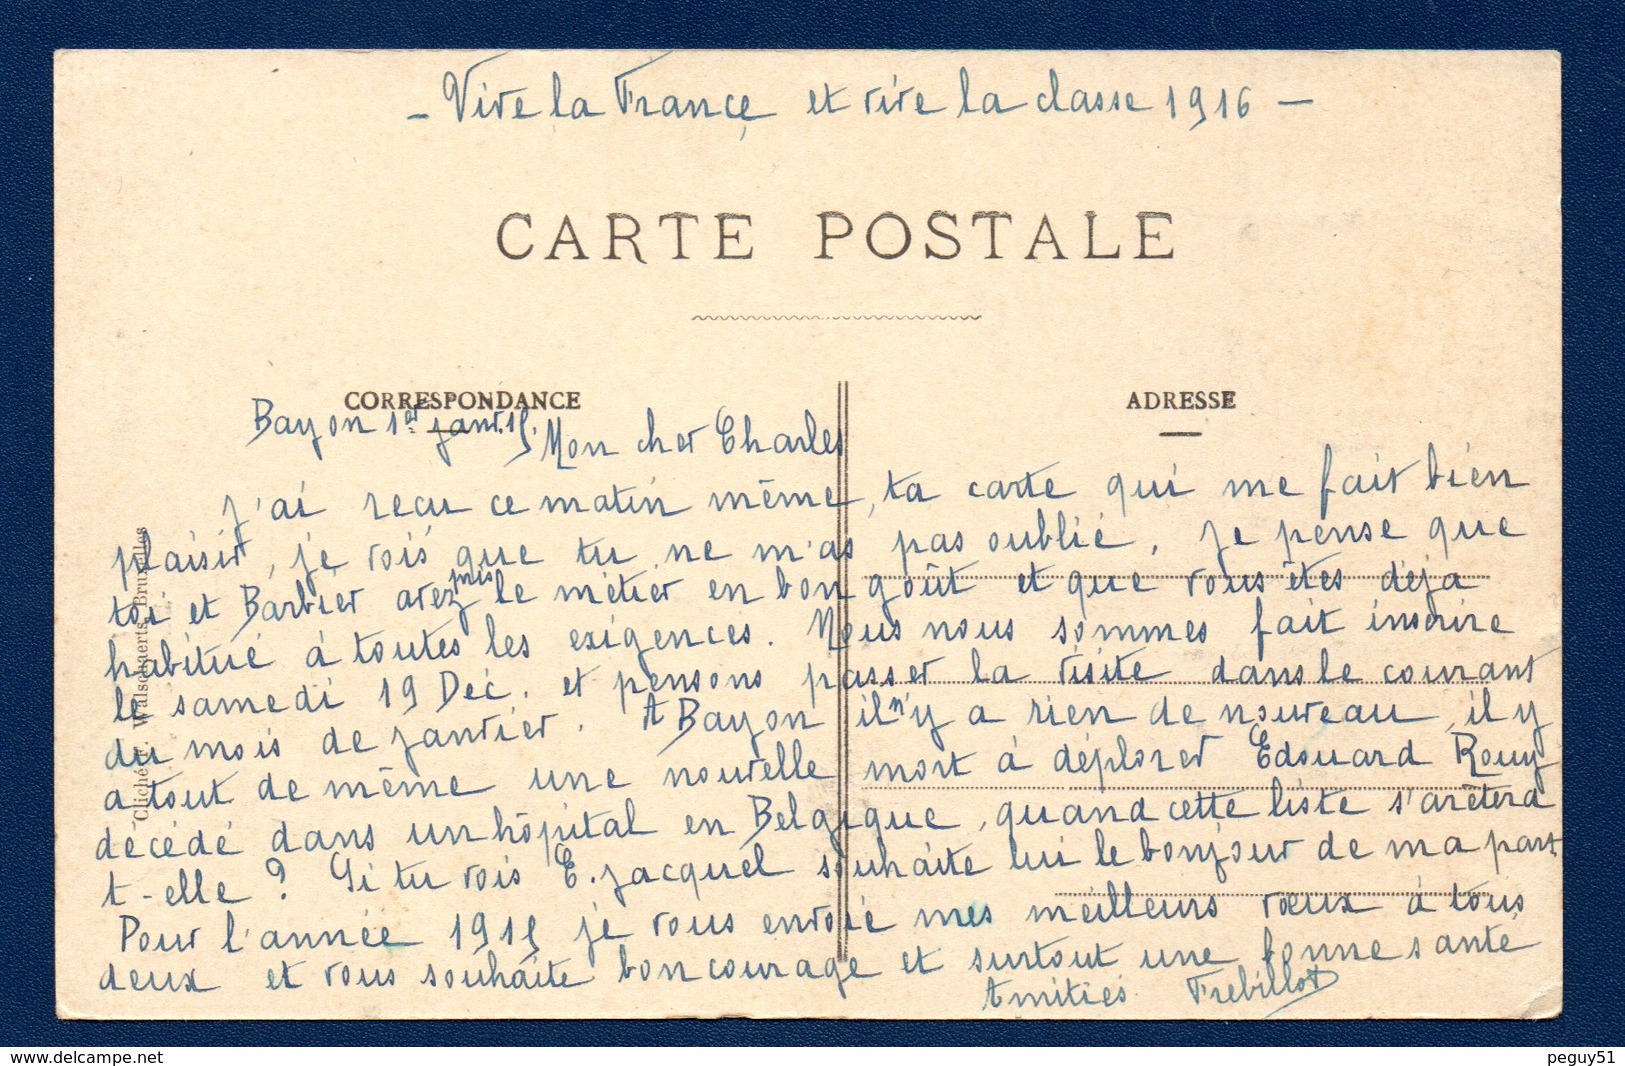 - Vive la France et vive la classe 1916 -
CARTE POSTALE
CORRESPONDANCE
ADRESSE
Bayon 1er janv. 15. Mon cher Charles
J'ai recu ce matin même, ta carte qui me fait bien
plaisir, je vois que tu ne m'as pas oublié. Je pense que
toi et Barbier avez pris le métier en bon goût et que vous êtes déja
habitué à toutes les exigences. Nous nous sommes fait inscrire
le samedi 19 Dec. et pensons passer la visite dans le courant
du mois de janvier. A Bayon il n'y a rien de nouveau, il y
a tout de même une nouvelle mort à déplorer Edouard Rouy
décédé dans un hôpital en Belgique, quand cette liste s'arêtera
t-elle ? Si tu vois E. Jacquel souhaite lui le bonjour de ma part
Pour l'année 1915 je vous envoie mes meilleurs vœux à tous
deux et vous souhaite bon courage et surtout une bonne santé
Amitiés. Frebillot
Cliché . Walschaerts, Bruxelles
delcampe.net
peguy51